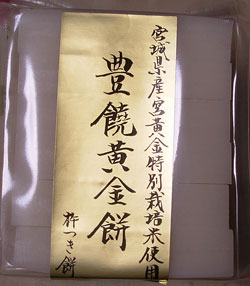 宮城県産宮黄金特別栽培米使用
豊饒黄金餅
杵つき餅